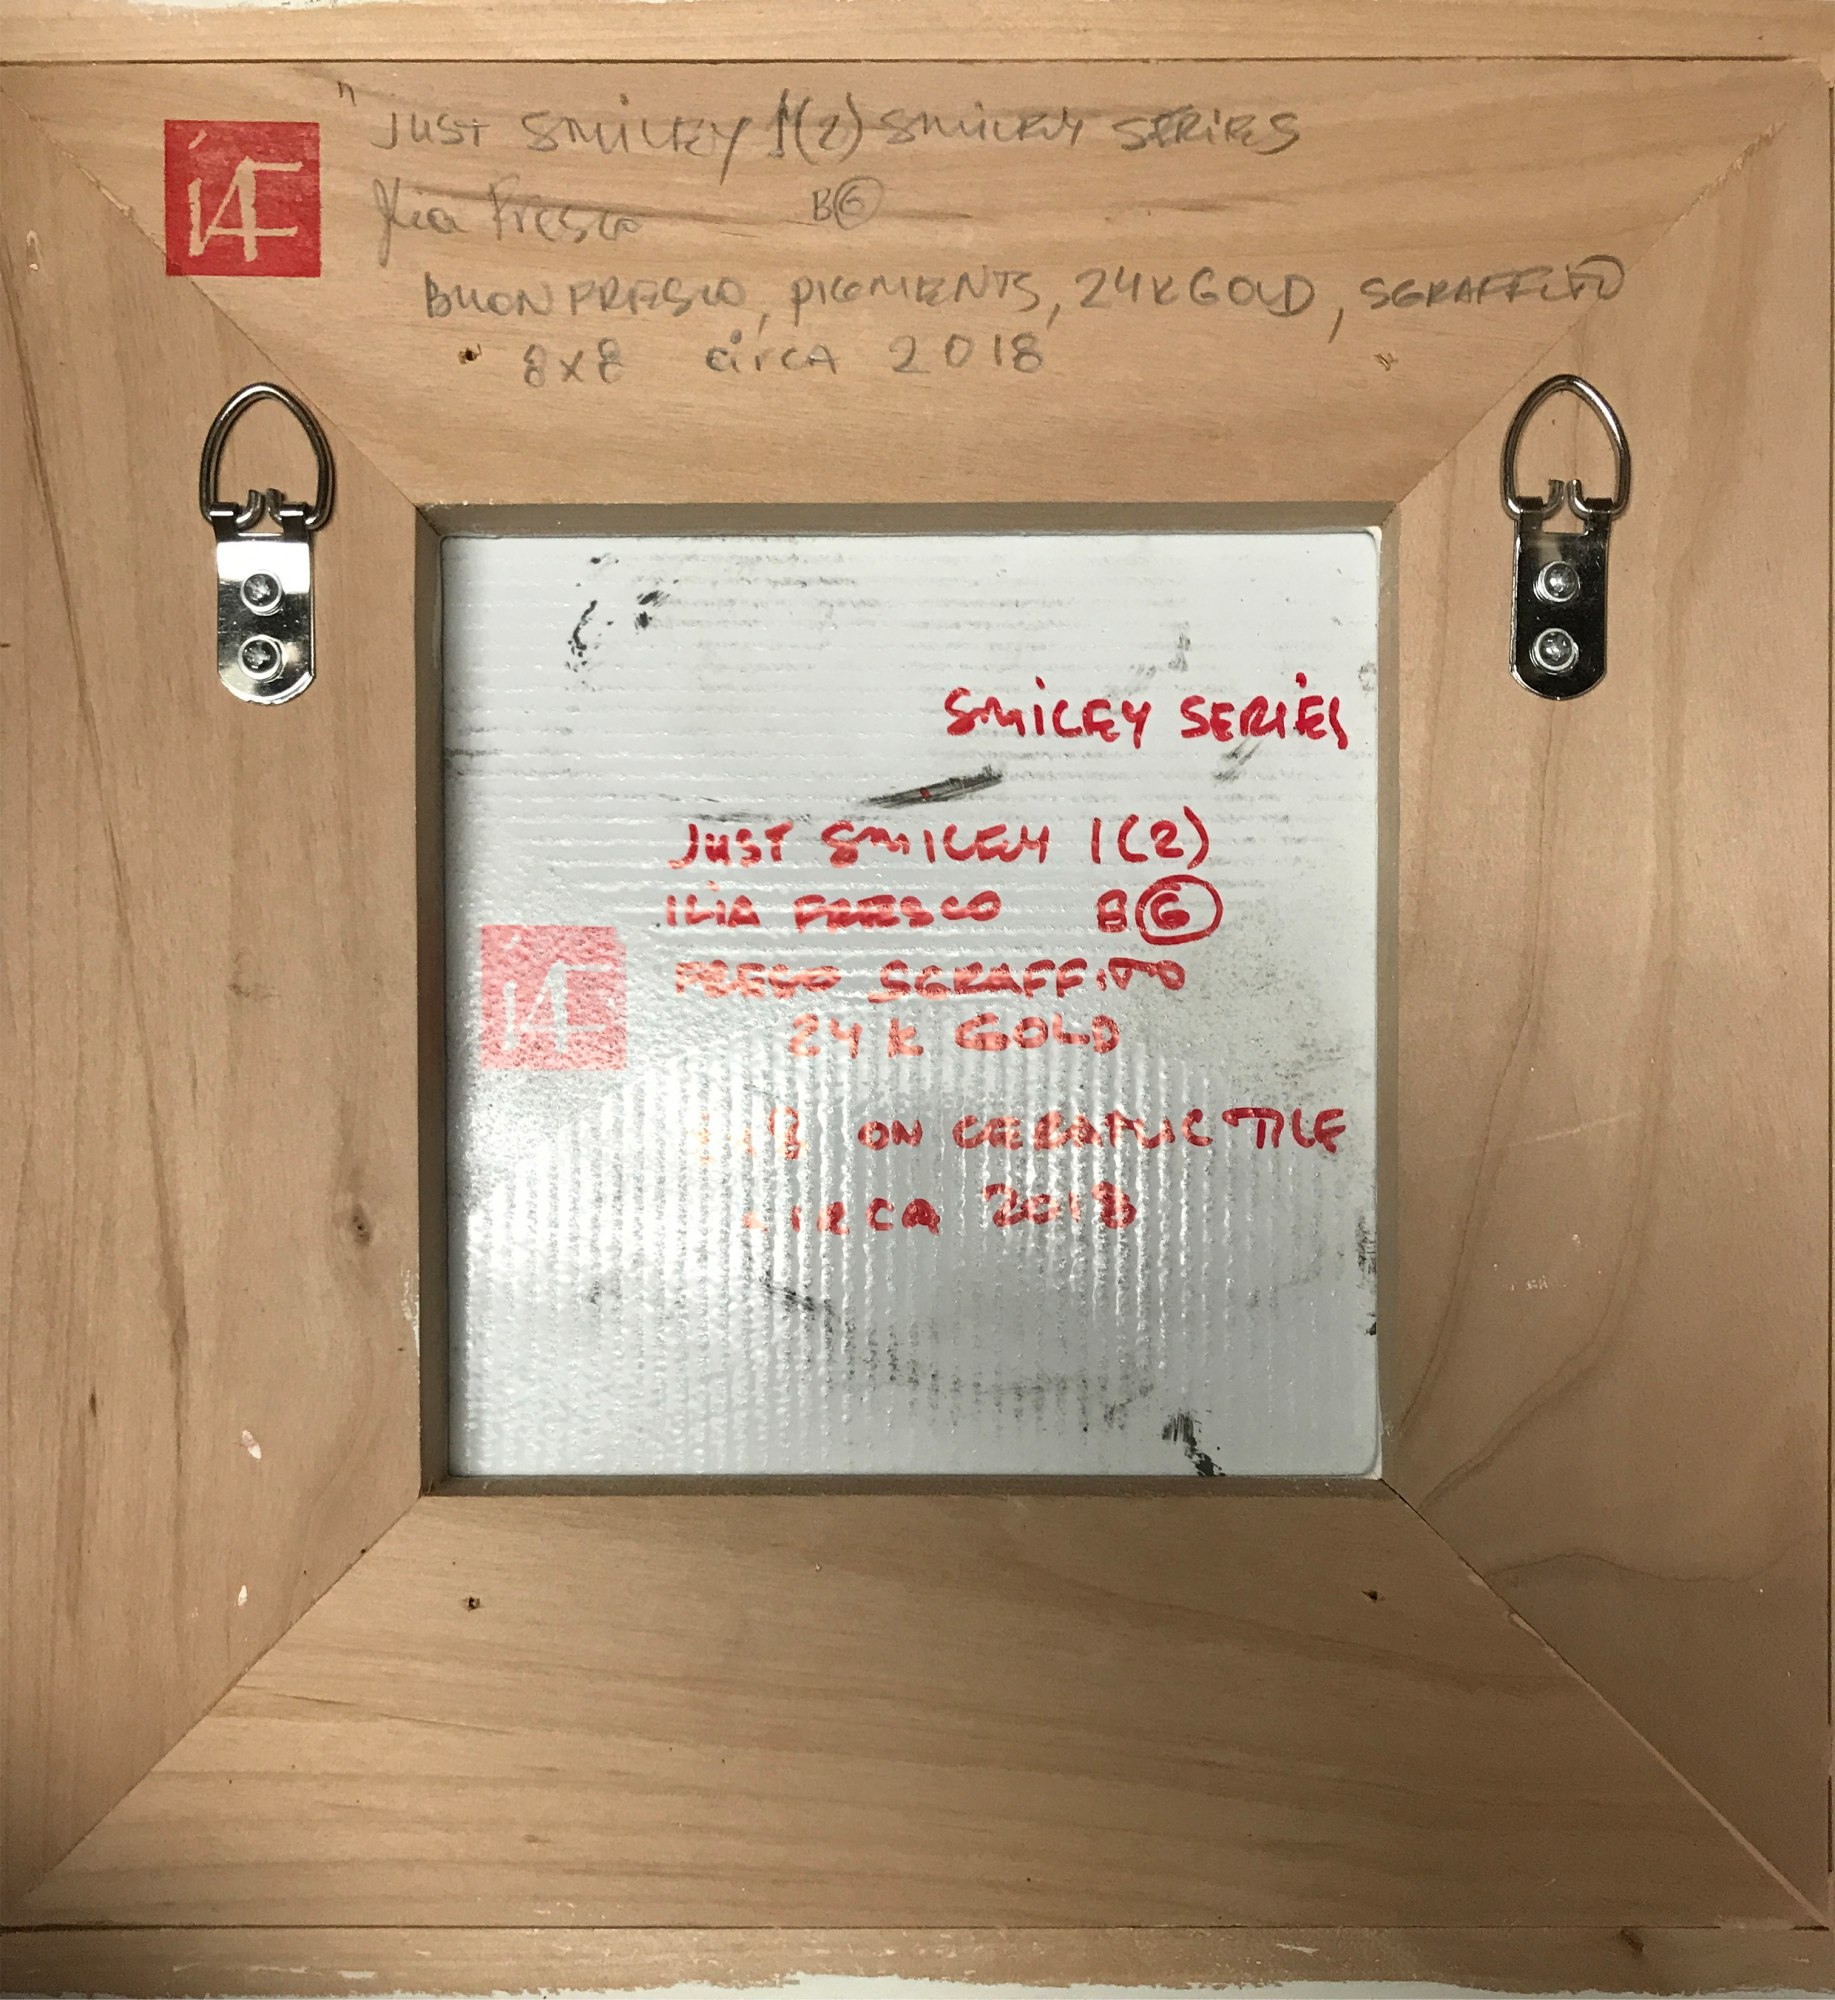 " JUST SMILEY 1(2) SMILEY SERIES
iAF
Ilia Fresco B6
BUON FRESCO, PIGMENTS, 24K GOLD, SGRAFFITO
8x8 circa 2018
SMILEY SERIES
JUST SMILEY 1(2)
ILIA FRESCO B6
iAF
FRESCO SGRAFFITO
24 K GOLD
ON CERAMIC TILE
CIRCA 2018